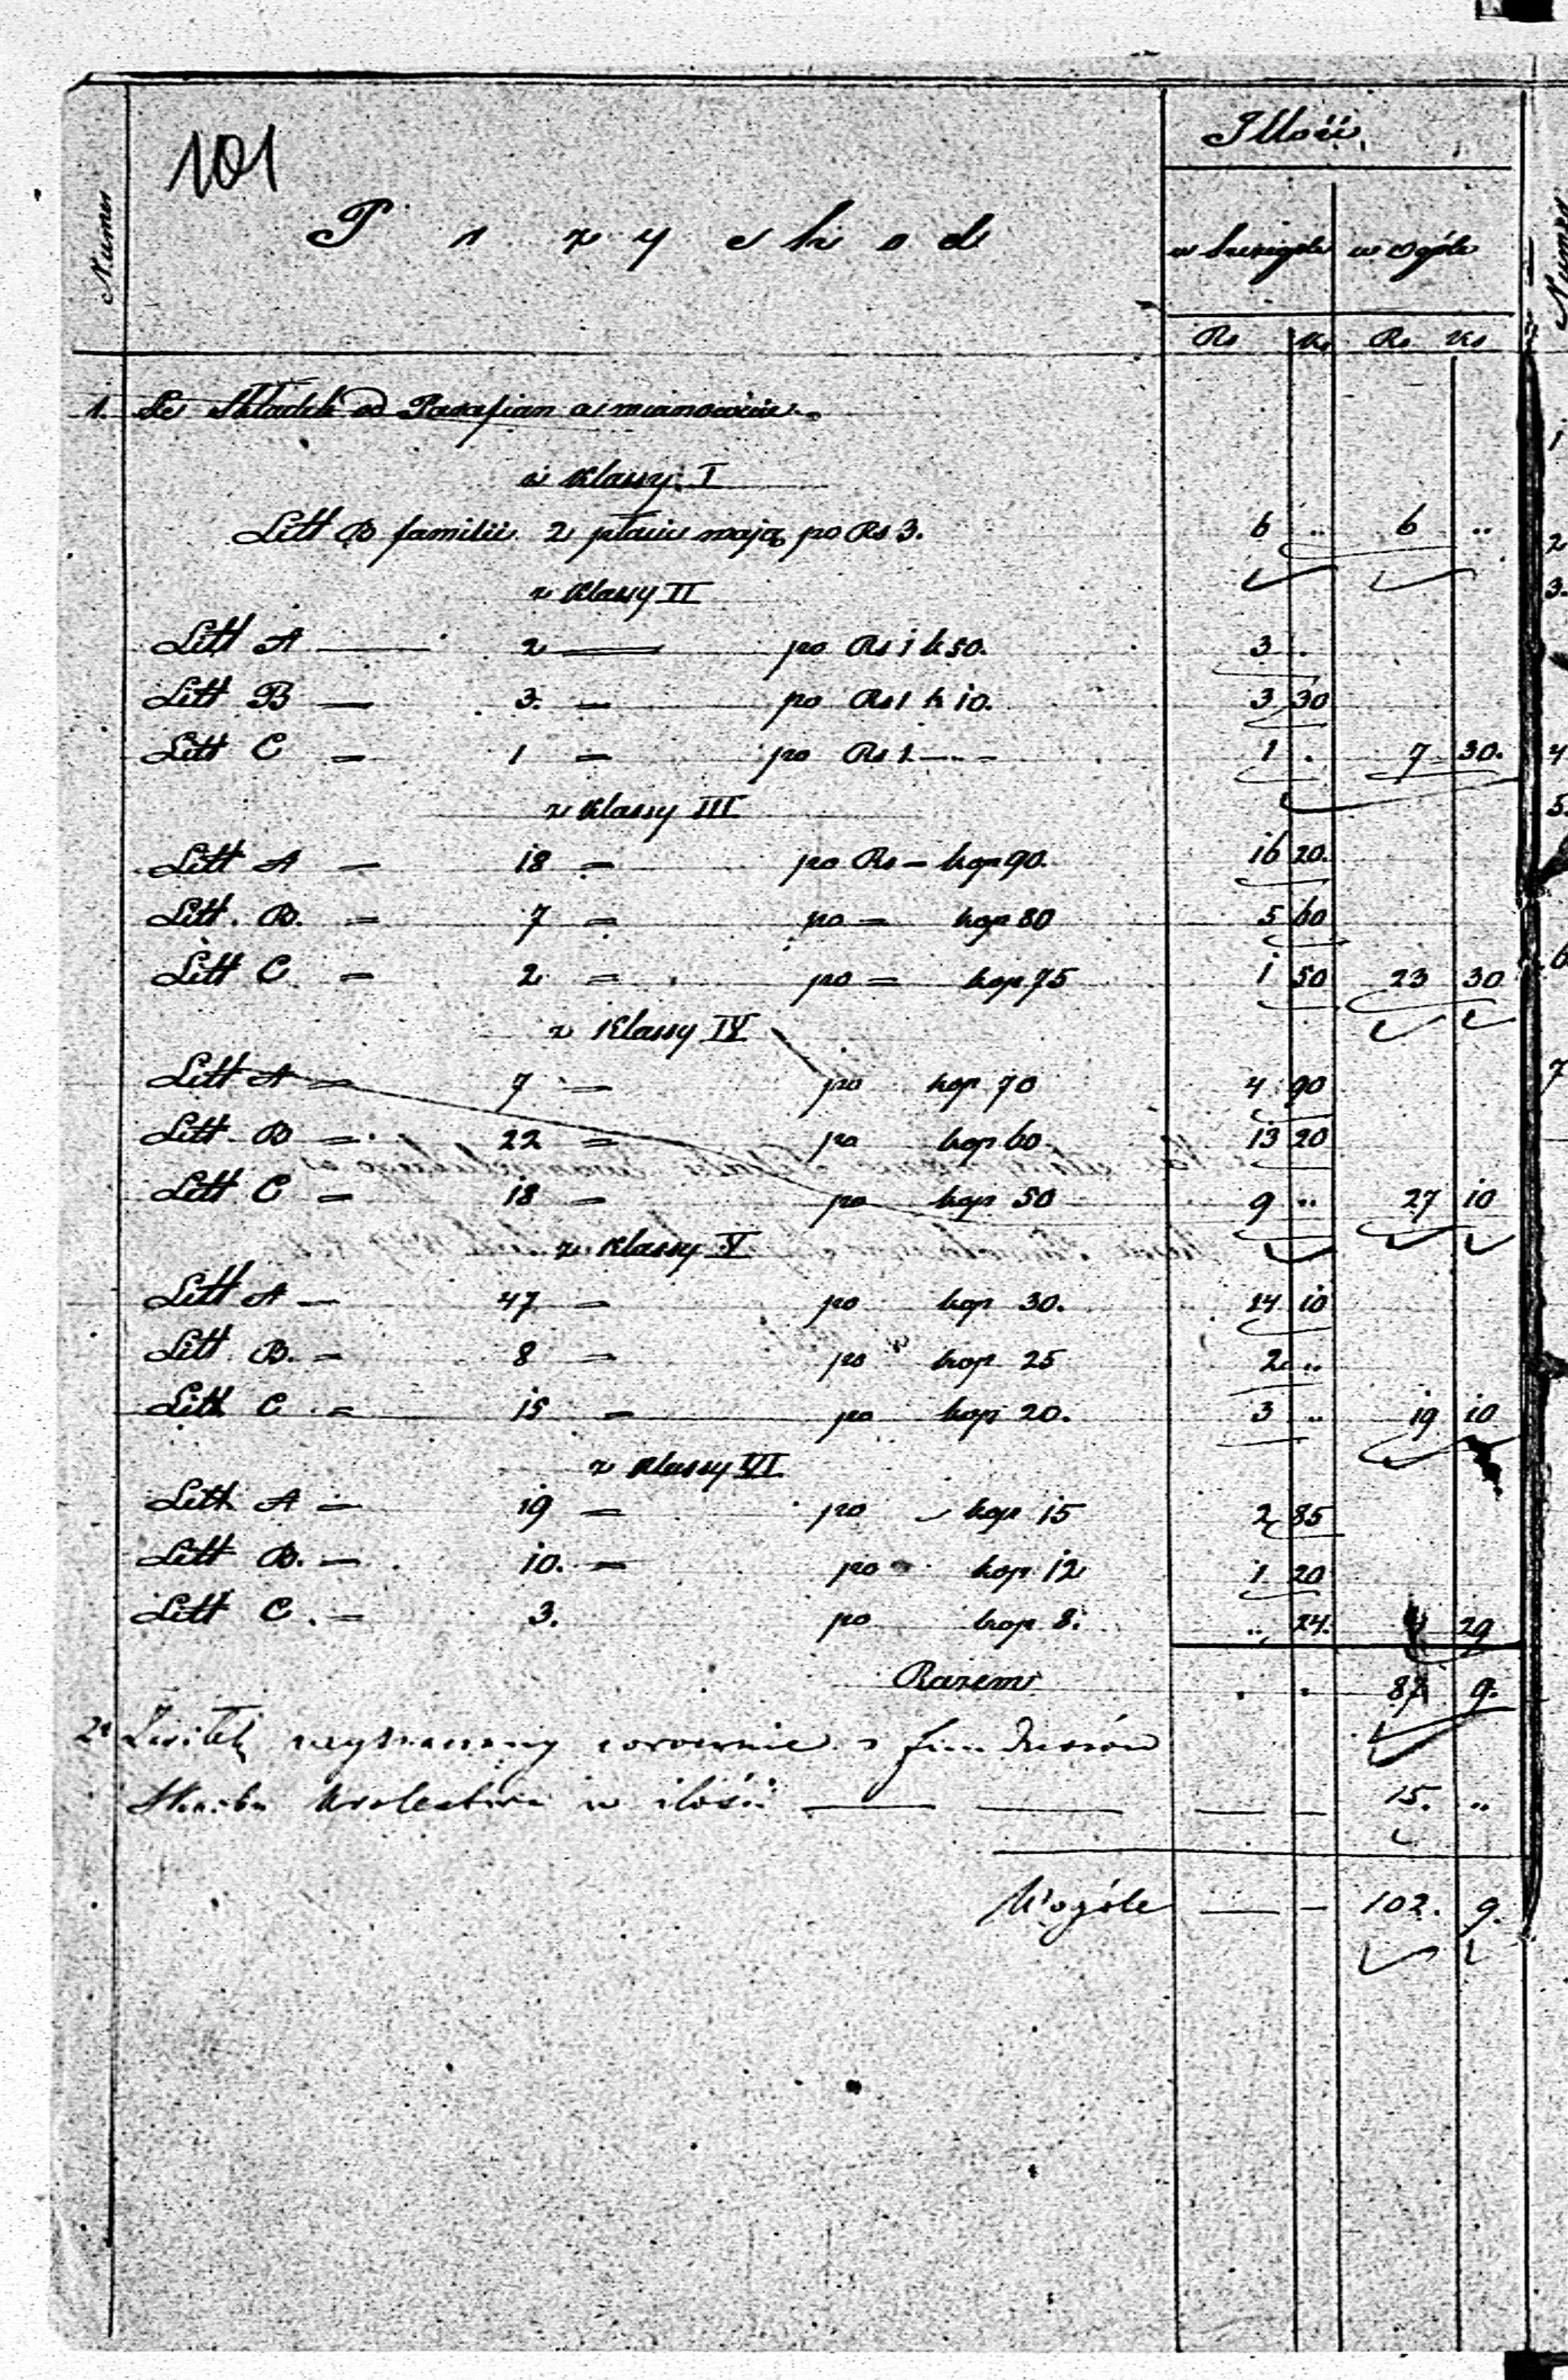 101
Illości
Numer
P r z y c h o d
w szczególe w ogóle
Rs ks Rs ks
1. Ze Składek od Parafian a mianowicie
z Klassy I
Litt B familii 2 płacić mają po Rs 3. 6 .. 6 ..
z Klassy II
Litt A — 2 — po Rs 1 k 50. 3 .
Litt B — 3. — po Rs 1 k 10. 3 30
Litt C — 1 — po Rs 1. — 1 . 7 30.
z Klassy III
Litt A — 18 — po Rs — kop 90. 16 20.
Litt. B. — 7 — po — kop 80 5 60
Litt C — 2 — po — kop 75 1 50 23 30
z Klassy IV
Litt A — 7 — po kop 70 4 90
Litt B — 22 — po kop 60 13 20
Litt C — 18 — po kop 50 9 .. 27 10
z Klassy V
Litt A — 47 — po kop 30. 14 10
Litt B. — 8 — po kop 25 2 ..
Litt C — 15 — po kop 20. 3 .. 19 10
z Klassy VI
Litt A — 19 — po kop 15 2 85
Litt B. — 10. — po kop 12 1 20
Litt C. — 3. po kop 8. .. 24. 4 29
Razem . . 87 9.
2. Zasiłek wyznaczony corocznie z funduszów
Skarbu Królestwa w ilości — — — — 15. ..
W ogóle — — 102. 9.